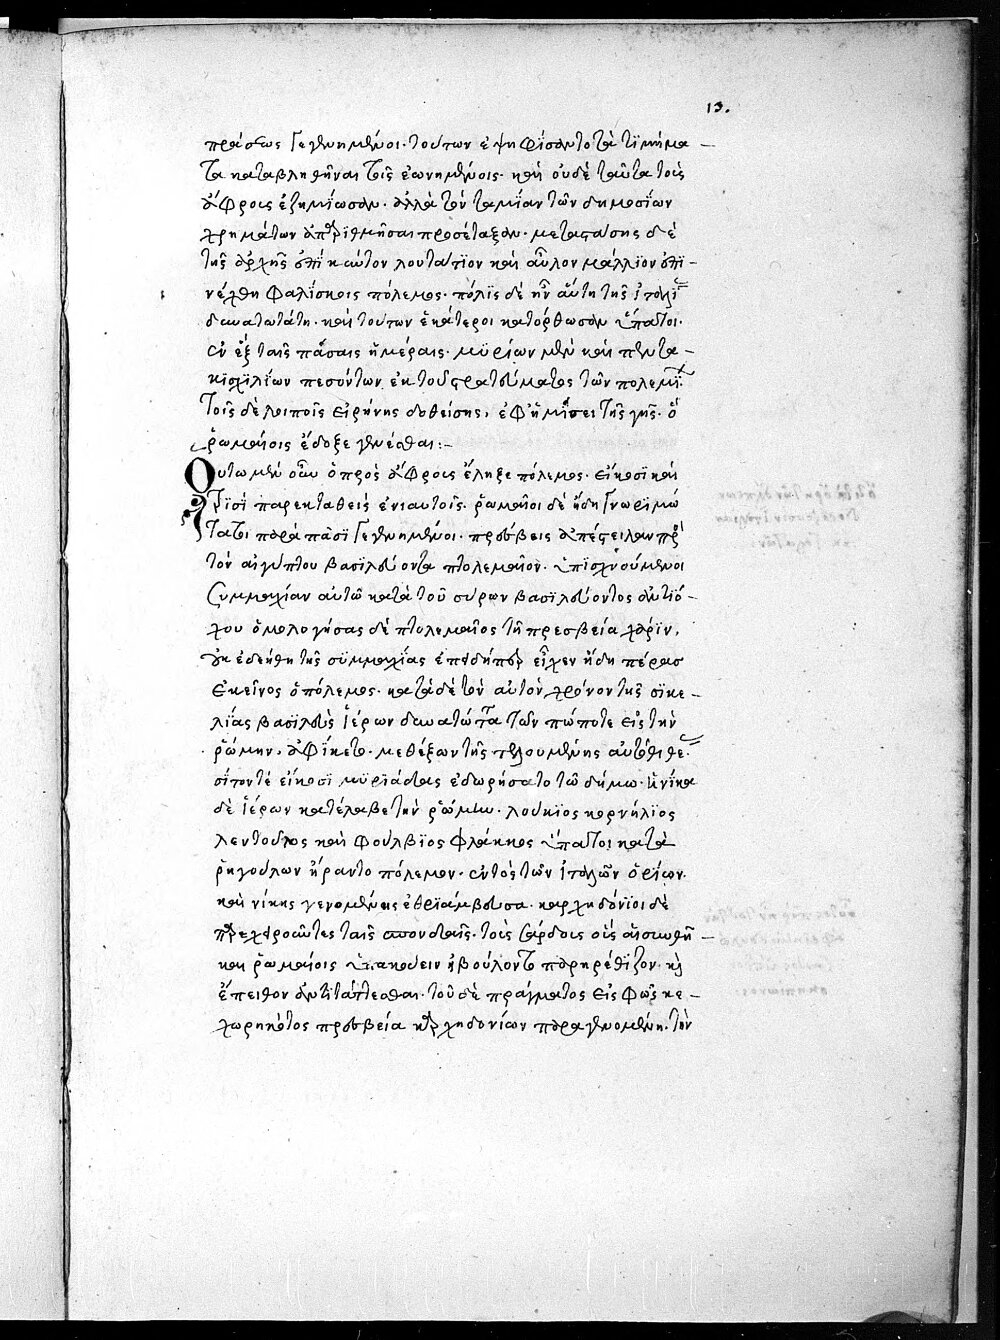 13.
πράσεως γεγενημένοι· τούτων ἐψηφίσαντο τὰ τιμήμα –
τα καταβληθῆναι τοῖς ἐωνημένοις· καὶ οὐδὲ ταῦτα τοὺς
ἄφρους ἐζημίωσαν· ἀλλὰ τὸν ταμίαν τῶν δημοσίων
χρημάτων ἀπαριθμῆσαι προσέταξαν· μεταστάσης δὲ
τῆς ἀρχῆς ἐπὶ κούϊντον λουτάτιον καὶ αὖλον μάλλιον ἐπι –
νέχθη φαλίσκοις πόλεμος· πόλις δὲ ἦν αὕτη τῆς ἰταλί
δυνατωτάτη· καὶ τοῦτον ἑκάτεροι κατόρθωσαν ὕπατοι·
ἐν ἓξ ταῖς πάσαις ἡμέραις· μυρίων μὲν καὶ πεντα –
κισχιλίων πεσόντων ἐκ τοῦ στρατεύματος τῶν πολεμί
τοῖς δὲ λοιποῖς εἰρήνης δοθείσης, ἐφ' ἡμίσει τῆς γῆς· ὃ
ῥωμαίοις ἔδοξε γενέσθαι:–
Οὕτω μὲν οὖν ὁ πρὸς ἄφρους ἔληξε πόλεμος· εἴκοσι καὶ
τρισὶ παρεκταθεὶς ἐνιαυτοῖς· ῥωμαῖοι δὲ ἤδη γνωριμώ
τατοι παρὰ πᾶσι γεγενημένοι· πρέσβεις ἀπέστειλαν πρὸ
τὸν αἰγύπτου βασιλεύοντα πτολεμαῖον· ὑπισχνούμενοι
συμμαχίαν αὐτῷ κατὰ τοῦ σύρων βασιλεύοντος ἀντιό –
χου ὁμολογήσας δὲ πτολεμαῖος τῇ πρεσβείᾳ χάριν,
οὐκ ἐδεήθη τῆς συμμαχίας ἐπειδήπερ εἶχεν ἤδη πέρας
ἐκεῖνος ὁ πόλεμος· κατὰ δὲ τὸν αὐτὸν χρόνον τῆς σικε –
λίας βασιλεὺς ἱέρων δυνατώτατα τῶν πώποτε εἰς τὴν
ῥώμην, ἀφίκετο· μεθέξων τῆς τελουμένης αὐτόθι θέ
σίτου τε εἴκοσι μυριάδας ἐδωρήσατο τῷ δήμῳ· ἡνίκα
δὲ ἱέρων κατέλαβε τὴν ῥώμην· λούκιος κορνήλιος
λέντουλος καὶ φούλβιος φλάκκος ὕπατοι κατὰ
ῥηγούλων ἤραντο πόλεμον· ἐντὸς τῶν ἰταλῶν ὁρίων·
καὶ νίκης γενομένης ἐθριάμβευσα· καρχηδόνιοι δὲ
παρεχθροῦντες ταῖς σπονδαῖς· τοὺς σάρδους οὓς αἰσχυθῆ –
και ῥωμαίοις ὑπακούειν ἠβούλοντο παρηρέθιζον· καὶ
ἔπειθον ἀντιτάττεσθαι· τοῦ δὲ πράγματος εἰς φῶς κε –
χωρηκότος πρεσβεία καρχηδονίων παραγενομένη· τὸν